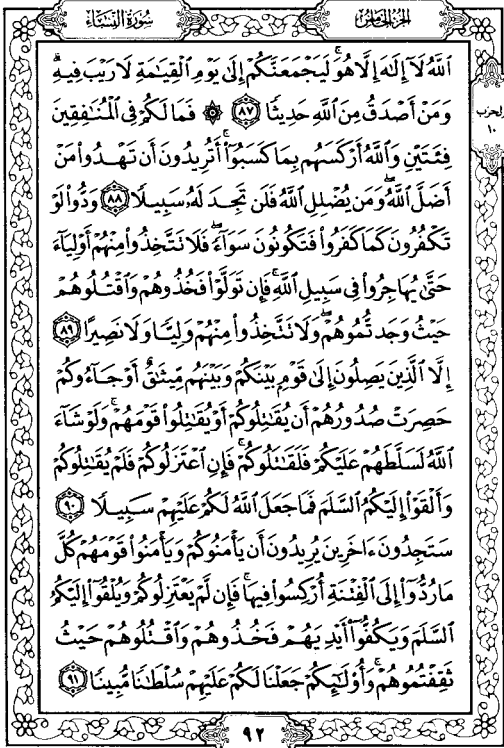 سُورَةُ النِّسَاءِ
الجُزءُ الخَامِسُ
اللَّهُ لَآ إِلَٰهَ إِلَّا هُوَۚ لَيَجۡمَعَنَّكُمۡ إِلَىٰ يَوۡمِ ٱلۡقِيَٰمَةِ لَا رَيۡبَ فِيهِۗ
وَمَنۡ أَصۡدَقُ مِنَ ٱللَّهِ حَدِيثٗا ٨٧ ۞ فَمَا لَكُمۡ فِي ٱلۡمُنَٰفِقِينَ
فِئَتَيۡنِ وَٱللَّهُ أَرۡكَسَهُم بِمَا كَسَبُوٓاْۚ أَتُرِيدُونَ أَن تَهۡدُواْ مَنۡ
أَضَلَّ ٱللَّهُۖ وَمَن يُضۡلِلِ ٱللَّهُ فَلَن تَجِدَ لَهُۥ سَبِيلٗا ٨٨ وَدُّواْ لَوۡ
تَكۡفُرُونَ كَمَا كَفَرُواْ فَتَكُونُونَ سَوَآءٗۖ فَلَا تَتَّخِذُواْ مِنۡهُمۡ أَوۡلِيَآءَ
حَتَّىٰ يُهَاجِرُواْ فِي سَبِيلِ ٱللَّهِۚ فَإِن تَوَلَّوۡاْ فَخُذُوهُمۡ وَٱقۡتُلُوهُمۡ
حَيۡثُ وَجَدتُّمُوهُمۡۖ وَلَا تَتَّخِذُواْ مِنۡهُمۡ وَلِيّٗا وَلَا نَصِيرًا ٨٩
إِلَّا ٱلَّذِينَ يَصِلُونَ إِلَىٰ قَوۡمِۭ بَيۡنَكُمۡ وَبَيۡنَهُم مِّيثَٰقٌ أَوۡ جَآءُوكُمۡ
حَصِرَتۡ صُدُورُهُمۡ أَن يُقَٰتِلُوكُمۡ أَوۡ يُقَٰتِلُواْ قَوۡمَهُمۡۚ وَلَوۡ شَآءَ
ٱللَّهُ لَسَلَّطَهُمۡ عَلَيۡكُمۡ فَلَقَٰتَلُوكُمۡۚ فَإِنِ ٱعۡتَزَلُوكُمۡ فَلَمۡ يُقَٰتِلُوكُمۡ
وَأَلۡقَوۡاْ إِلَيۡكُمُ ٱلسَّلَمَ فَمَا جَعَلَ ٱللَّهُ لَكُمۡ عَلَيۡهِمۡ سَبِيلٗا ٩٠
سَتَجِدُونَ ءَاخَرِينَ يُرِيدُونَ أَن يَأۡمَنُوكُمۡ وَيَأۡمَنُواْ قَوۡمَهُمۡ كُلَّ
مَا رُدُّوٓاْ إِلَى ٱلۡفِتۡنَةِ أُرۡكِسُواْ فِيهَاۚ فَإِن لَّمۡ يَعۡتَزِلُوكُمۡ وَيُلۡقُوٓاْ إِلَيۡكُمُ
ٱلسَّلَمَ وَيَكُفُّوٓاْ أَيۡدِيَهُمۡ فَخُذُوهُمۡ وَٱقۡتُلُوهُمۡ حَيۡثُ
ثَقِفۡتُمُوهُمۡۚ وَأُوْلَٰٓئِكُمۡ جَعَلۡنَا لَكُمۡ عَلَيۡهِمۡ سُلۡطَٰنٗا مُّبِينٗا ٩١
الحزب
١٠
٩٢